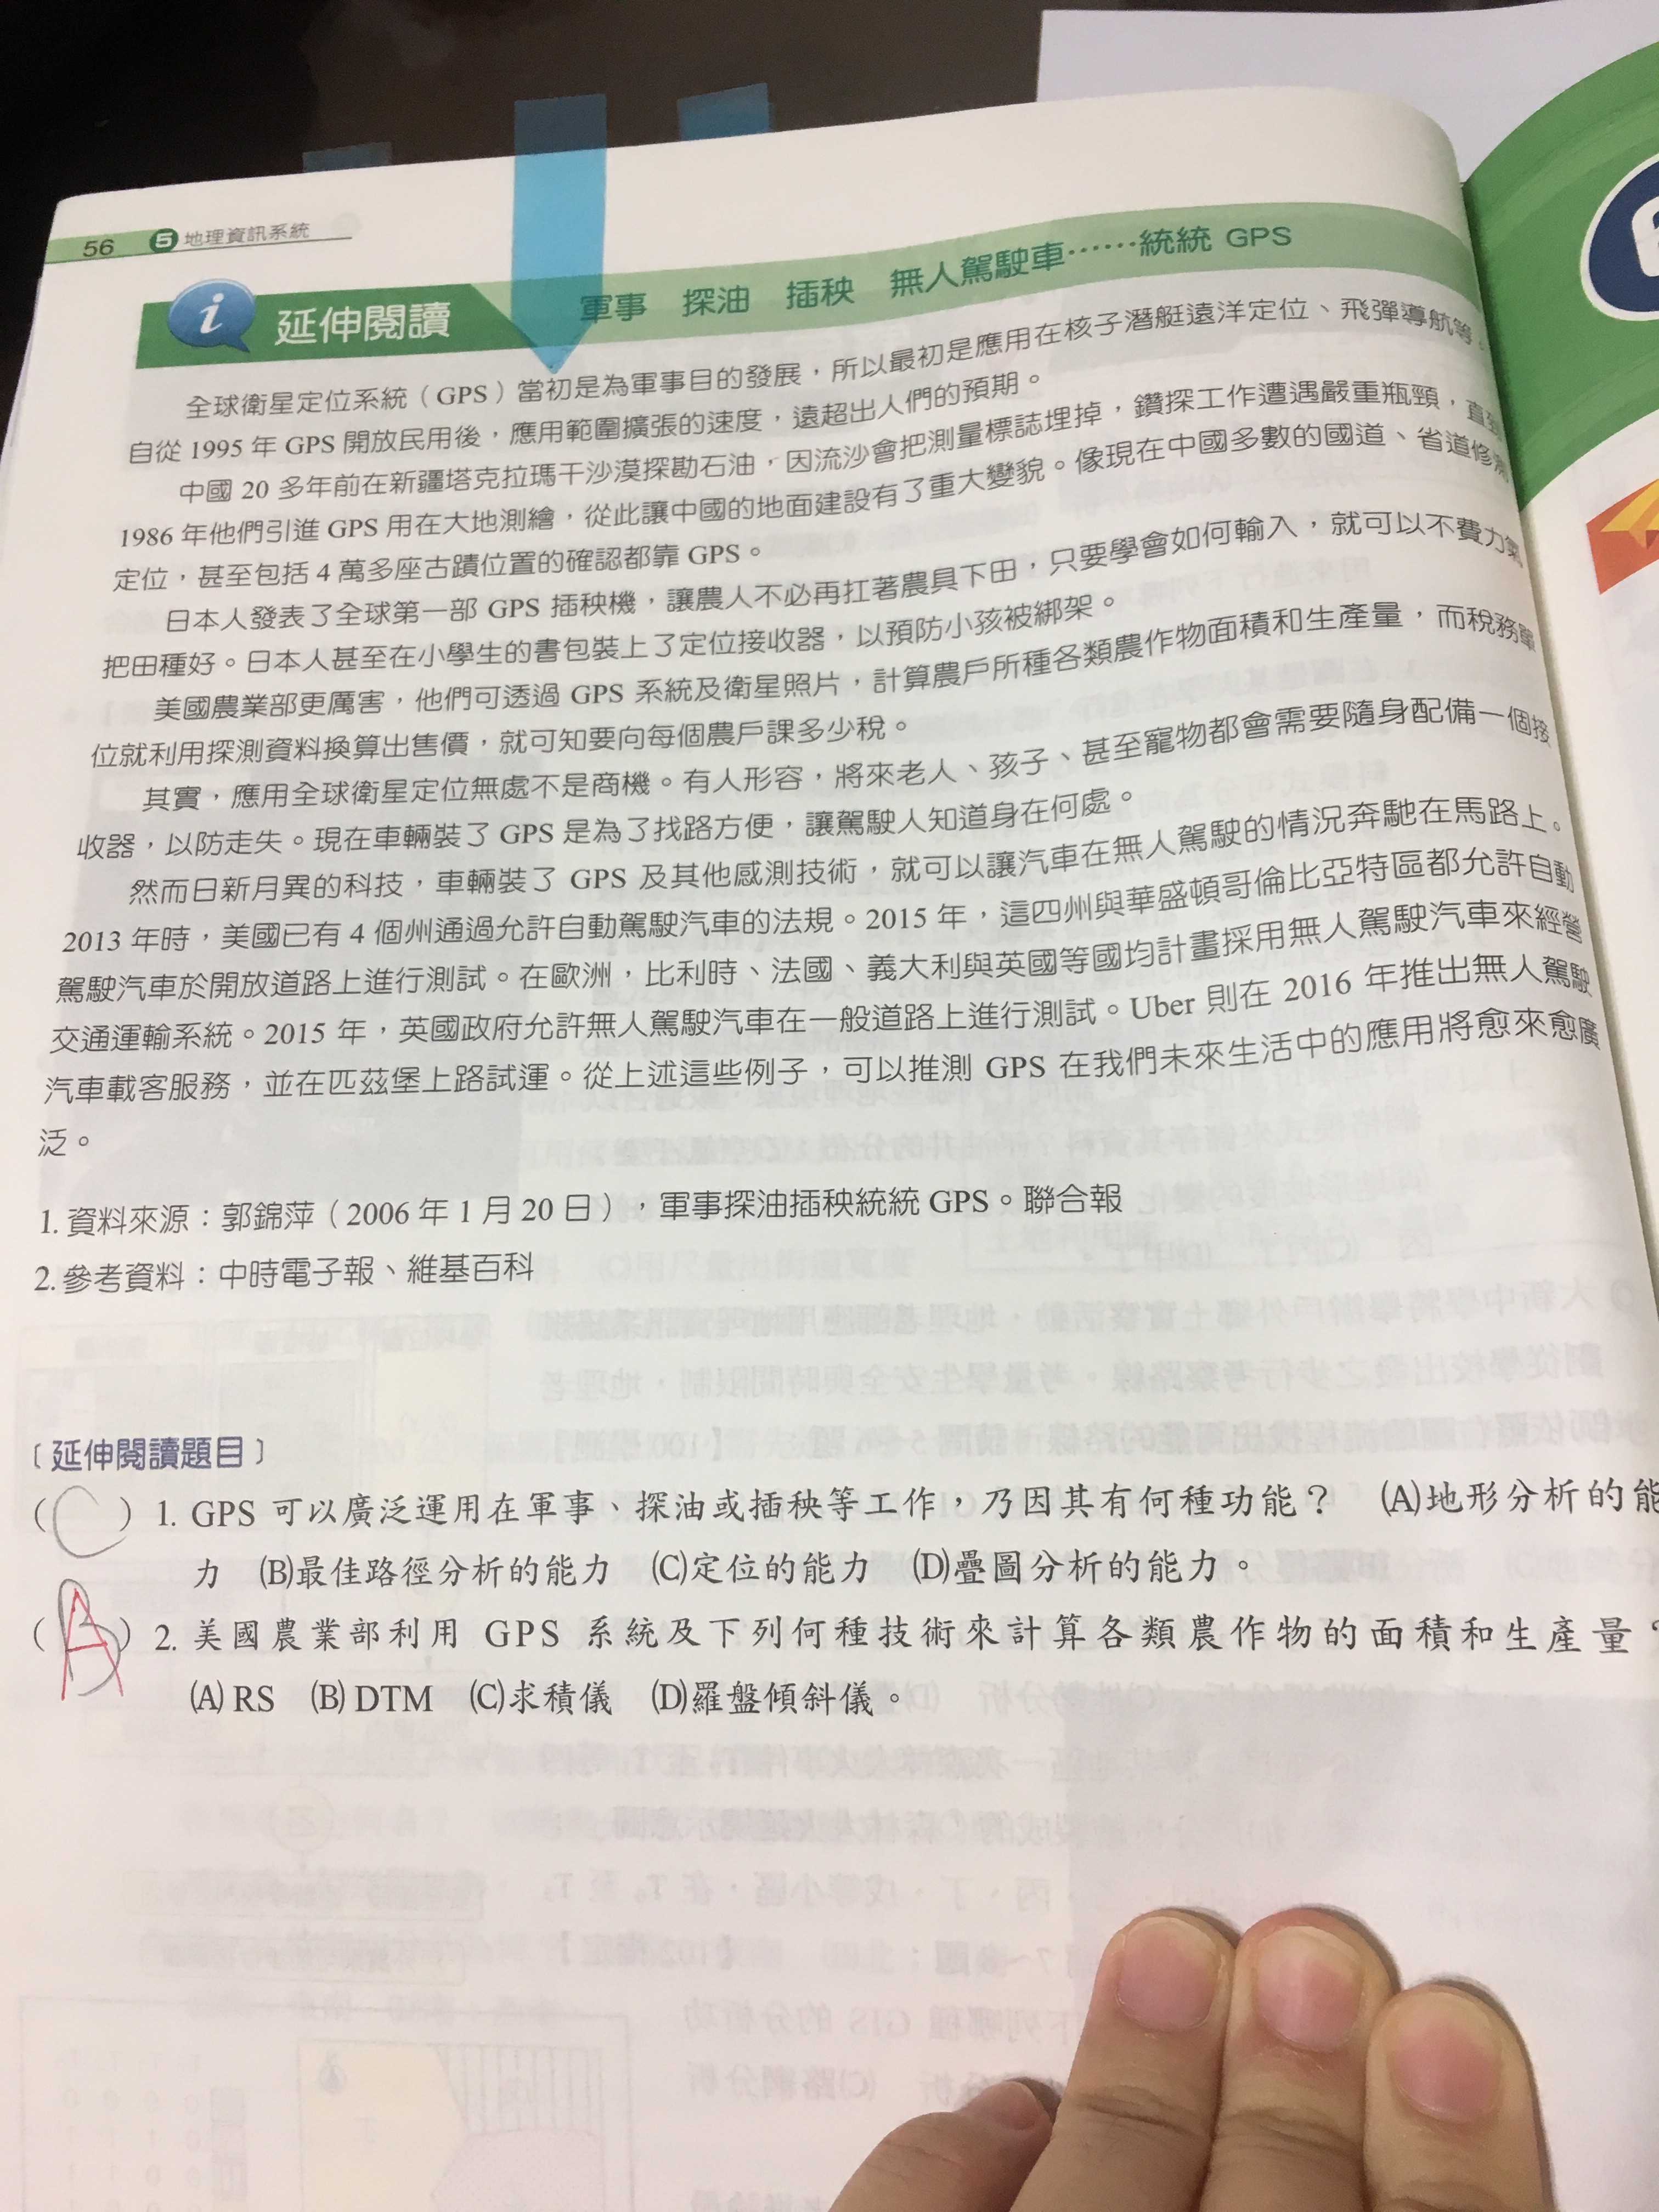 56 5 地理資訊系統
i 延伸閱讀 軍事 探油 插秧 無人駕駛車……統統 GPS
全球衛星定位系統（GPS）當初是為軍事目的發展，所以最初是應用在核子潛艇遠洋定位、飛彈導航等。
自從 1995 年 GPS 開放民用後，應用範圍擴張的速度，遠超出人們的預期。
中國 20 多年前在新疆塔克拉瑪干沙漠探勘石油，因流沙會把測量標誌埋掉，鑽探工作遭遇嚴重瓶頸，直到
1986 年他們引進 GPS 用在大地測繪，從此讓中國的地面建設有了重大變貌。像現在中國多數的國道、省道修
定位，甚至包括 4 萬多座古蹟位置的確認都靠 GPS。
日本人發表了全球第一部 GPS 插秧機，讓農人不必再扛著農具下田，只要學會如何輸入，就可以不費力氣
把田種好。日本人甚至在小學生的書包裝上了定位接收器，以預防小孩被綁架。
美國農業部更厲害，他們可透過 GPS 系統及衛星照片，計算農戶所種各類農作物面積和生產量，而稅務單
位就利用探測資料換算出售價，就可知要向每個農戶課多少稅。
其實，應用全球衛星定位無處不是商機。有人形容，將來老人、孩子、甚至寵物都會需要隨身配備一個接
收器，以防走失。現在車輛裝了 GPS 是為了找路方便，讓駕駛人知道身在何處。
然而日新月異的科技，車輛裝了 GPS 及其他感測技術，就可以讓汽車在無人駕駛的情況奔馳在馬路上。
2013 年時，美國已有 4 個州通過允許自動駕駛汽車的法規。2015 年，這四州與華盛頓哥倫比亞特區都允許自動
駕駛汽車於開放道路上進行測試。在歐洲，比利時、法國、義大利與英國等國均計畫採用無人駕駛汽車來經營
交通運輸系統。2015 年，英國政府允許無人駕駛汽車在一般道路上進行測試。Uber 則在 2016 年推出無人駕駛
汽車載客服務，並在匹茲堡上路試運。從上述這些例子，可以推測 GPS 在我們未來生活中的應用將愈來愈廣
泛。
1. 資料來源：郭錦萍（2006 年 1 月 20 日），軍事探油插秧統統 GPS。聯合報
2. 參考資料：中時電子報、維基百科
〔延伸閱讀題目〕
（C）1. GPS 可以廣泛運用在軍事、探油或插秧等工作，乃因其有何種功能？ (A)地形分析的能
力 (B)最佳路徑分析的能力 (C)定位的能力 (D)疊圖分析的能力。
（A）2. 美國農業部利用 GPS 系統及下列何種技術來計算各類農作物的面積和生產量？
(A) RS (B) DTM (C)求積儀 (D)羅盤傾斜儀。